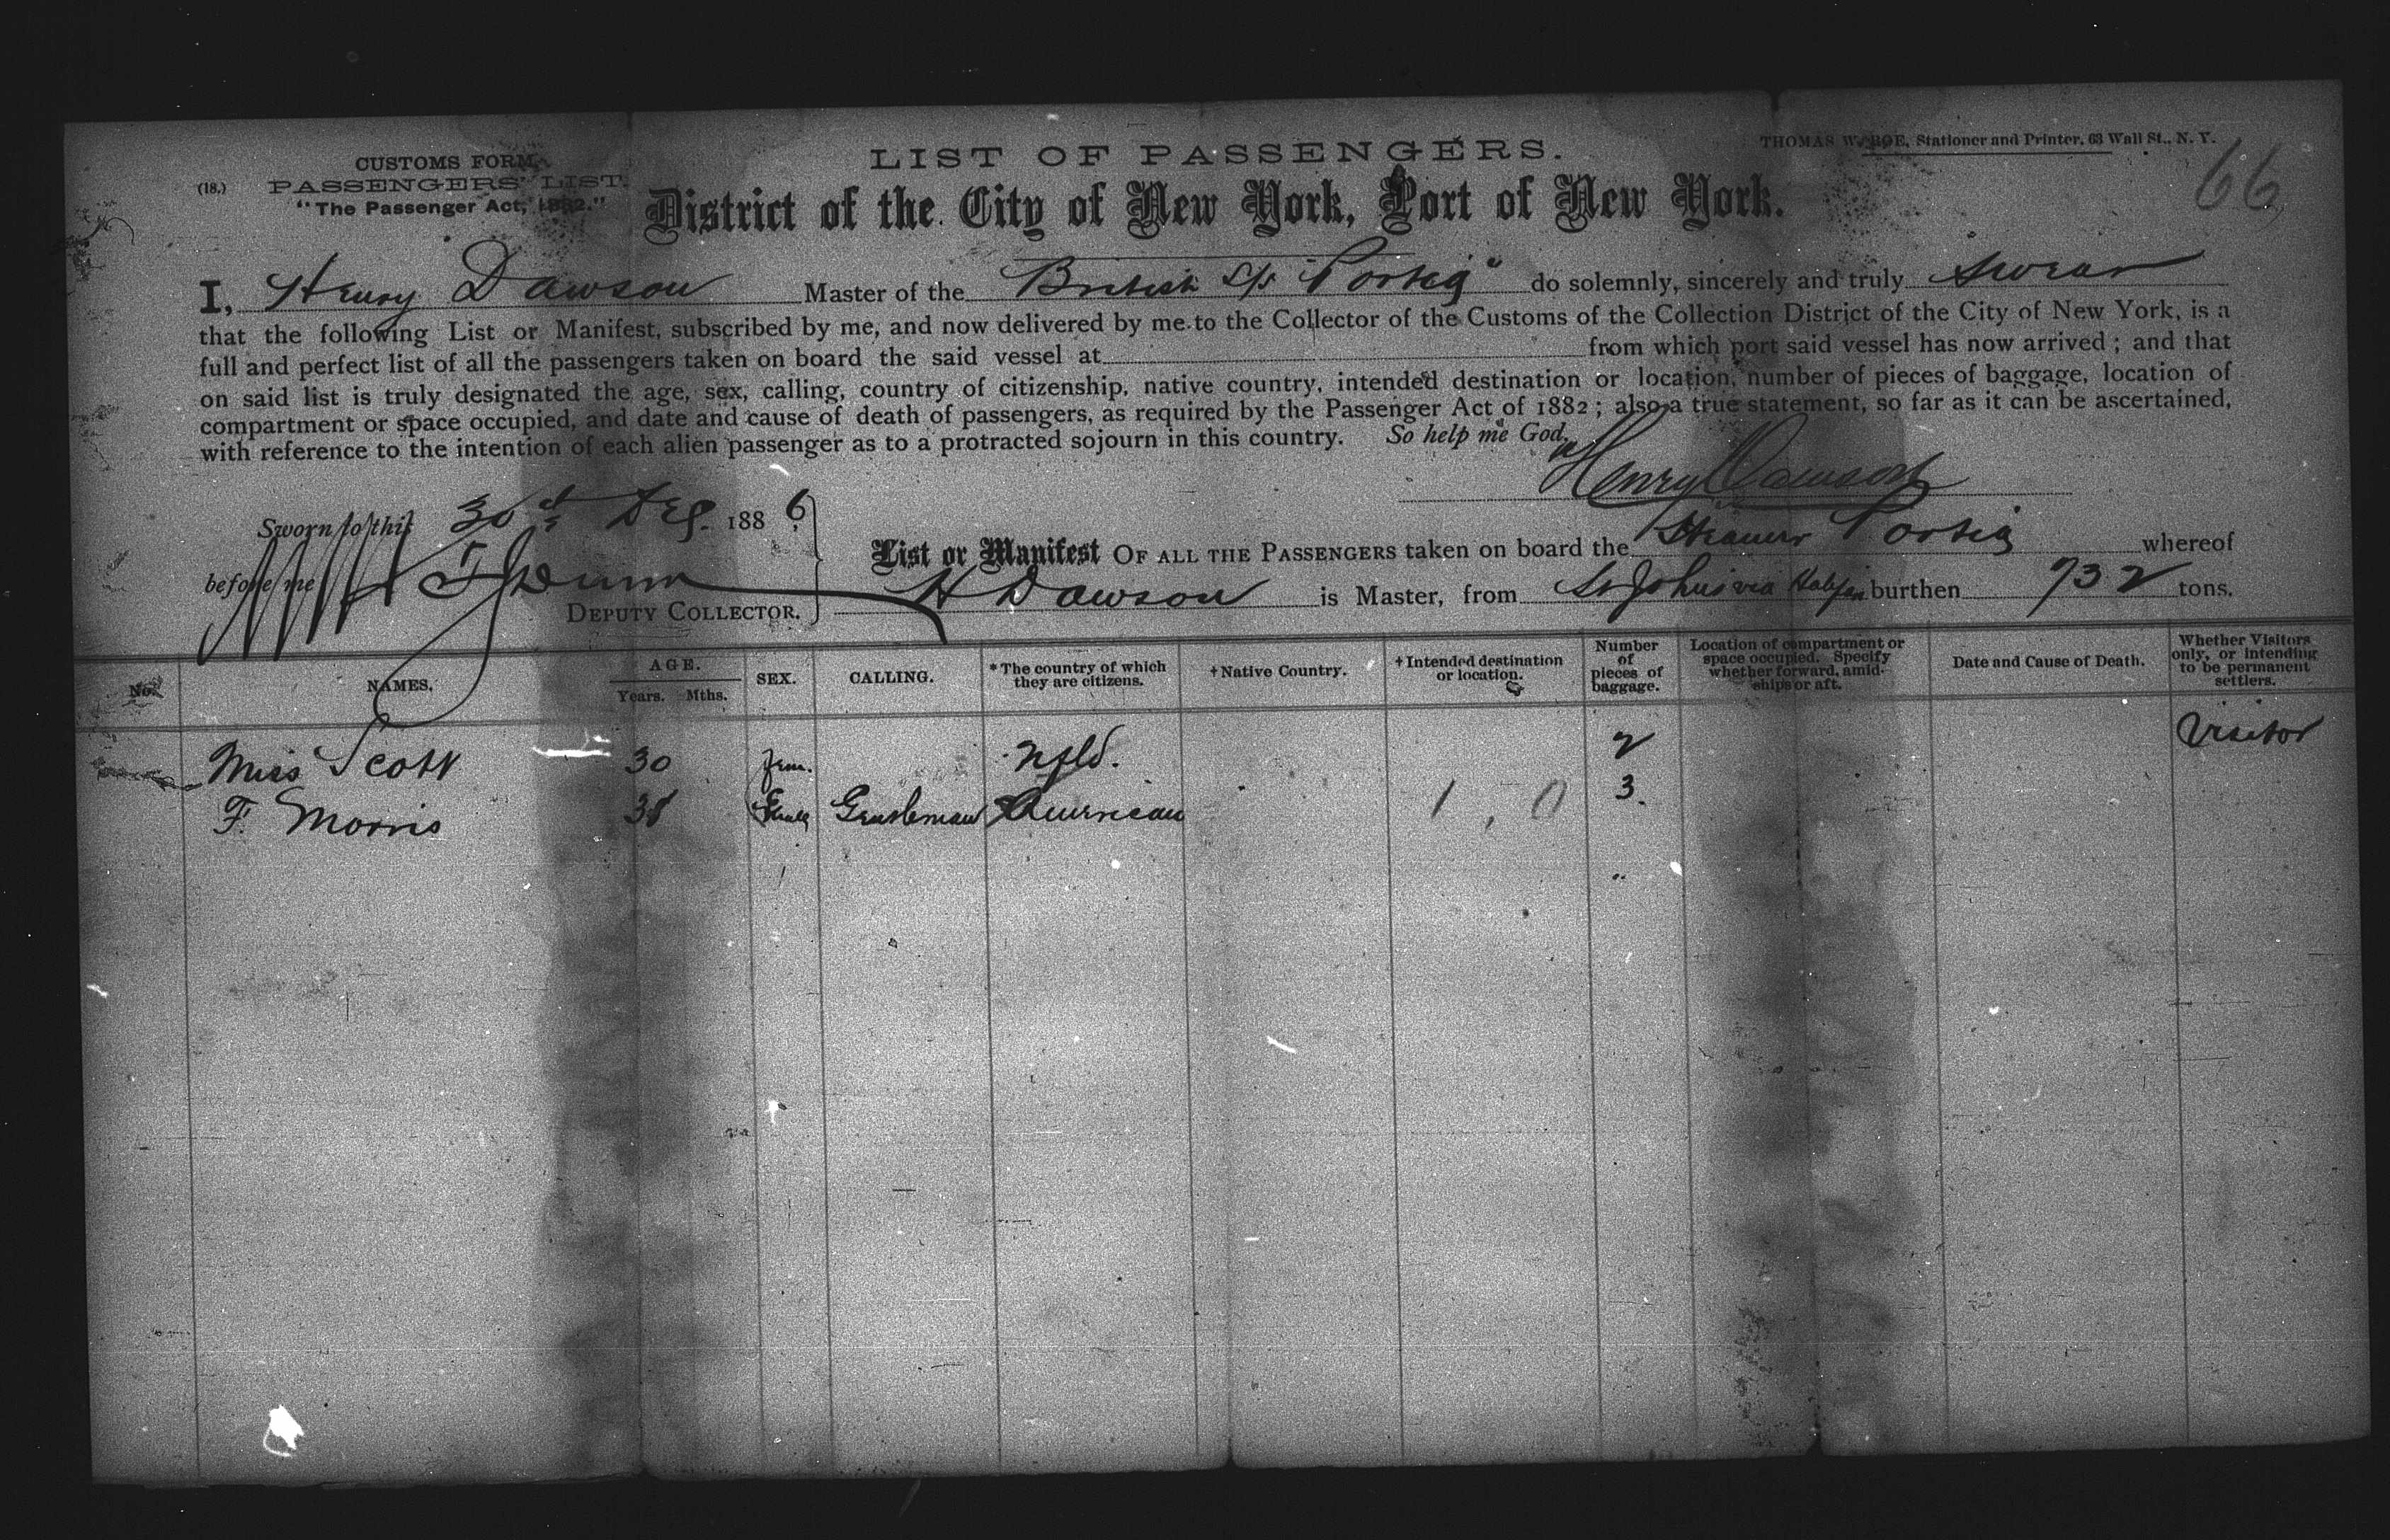 LIST OF PASSENGERS.
THOMAS W. ROE, Stationer and Printer, 63 Wall St., N. Y.
66
CUSTOMS FORM
(18.) PASSENGERS' LIST.
"The Passenger Act, 1882."
District of the City of New York, Port of New York.
I, Henry Dawson Master of the British S/S "Portia" do solemnly, sincerely and truly swear
that the following List or Manifest, subscribed by me, and now delivered by me to the Collector of the Customs of the Collection District of the City of New York, is a
full and perfect list of all the passengers taken on board the said vessel at from which port said vessel has now arrived; and that
on said list is truly designated the age, sex, calling, country of citizenship, native country, intended destination or location, number of pieces of baggage, location of
compartment or space occupied, and date and cause of death of passengers, as required by the Passenger Act of 1882; also a true statement, so far as it can be ascertained,
with reference to the intention of each alien passenger as to a protracted sojourn in this country. So help me God.
Henry Dawson
Sworn to this 30th 1886
List or Manifest OF ALL THE PASSENGERS taken on board the Steamer Portia whereof
before me Dunn
DEPUTY COLLECTOR.
H Dawson is Master, from St Johns via Halifax burthen 732 tons.
No. NAMES. AGE. Years. Mths. SEX. CALLING. *The country of which they are citizens. †Native Country. †Intended destination or location. Number of pieces of baggage. Location of compartment or space occupied. Specify whether forward, amidships or aft. Date and Cause of Death. Whether Visitors only, or intending to be permanent settlers.
Miss Scott 30 fem. Nfld. 2 Visitor
F. Morris Gentleman American 1, 0 3.